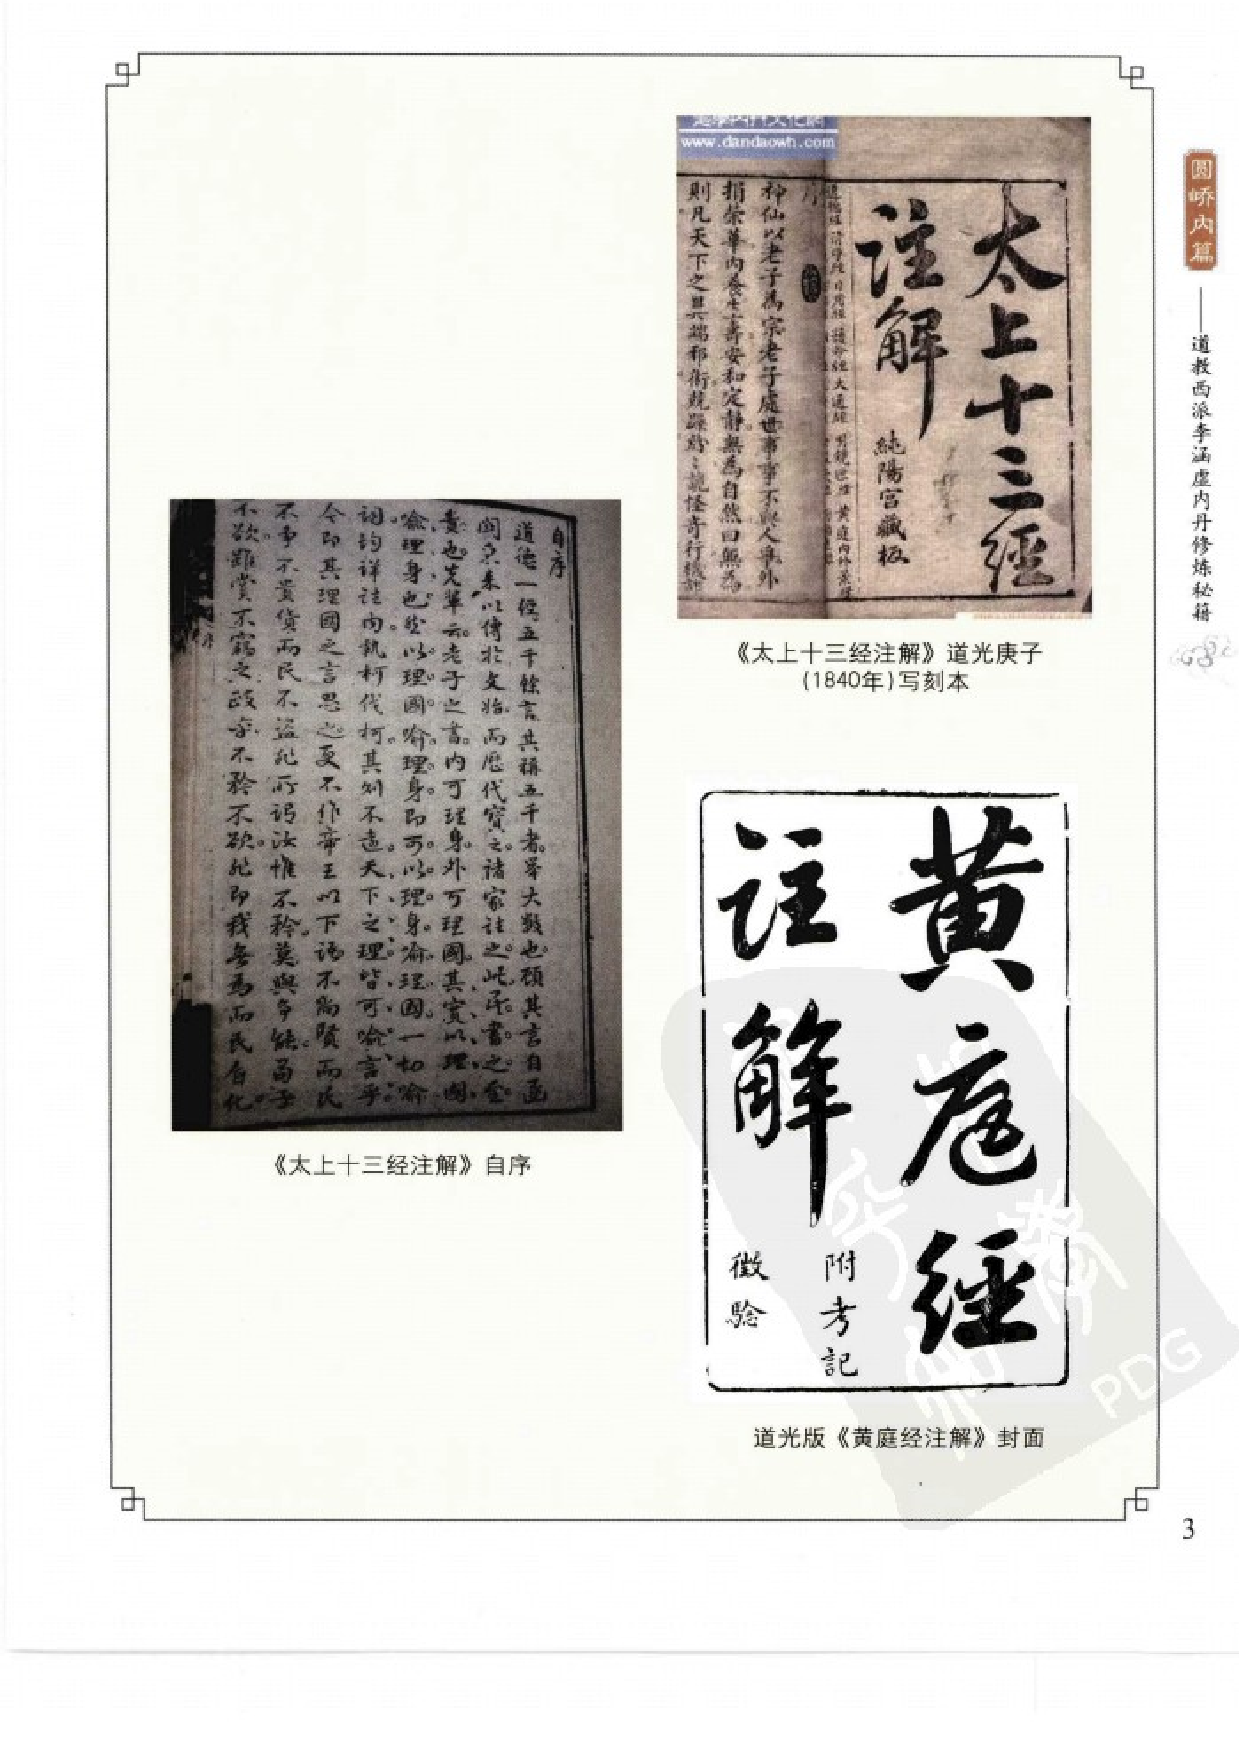 圆峤内篇
——道教西派李涵虚内丹修炼秘籍
www.dandaowh.com
太上十三經
註解
純陽宮藏板
序
神仙以老子為宗老子處世事事不與人爭外
捐榮華內養生壽安和定靜無為自然曰無為
《太上十三经注解》道光庚子
(1840年)写刻本
自序
道德一經五千餘言其稱五千者舉大數也顧其言自函
貴也先輩云老子之書內可理身外可理國其實以理國
喻理身也能以理國喻理身即可以理身喻理國一切喻
詞均詳註內執柯伐柯其則不遠天下之理皆可喻言乎
今即其理國之言思之更不作帝王以下語不尚賢而民
不爭不貴貨而民不盜
不欲難賞不竊之政乎不矜不欲死即我無為而民自化
《太上十三经注解》自序
黃庭經
註解
附考記
徵驗
道光版《黄庭经注解》封面
PDG
3